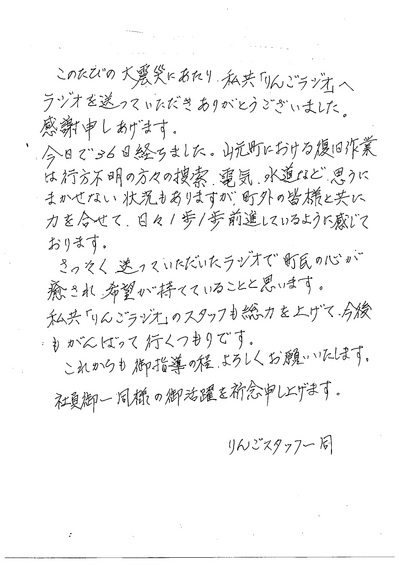 このたびの大震災にあたり、私共「りんごラジオ」へ
ラジオを送っていただきありがとうございました。
感謝申しあげます。
今日で36日経ちました。山元町における復旧作業
は行方不明の方々の捜索、電気、水道など、思うに
まかせない状況もありますが、町外の皆様と共に
力を合せて、日々1歩1歩前進しているように感じて
おります。
さっそく送っていただいたラジオで町民の心が
癒され、希望が持てていることと思います。
私共「りんごラジオ」のスタッフも総力を上げて、今後
もがんばって行くつもりです。
これからも御指導の程、よろしくお願いいたします。
社員御一同様の御活躍を祈念申し上げます。
りんごスタッフ一同